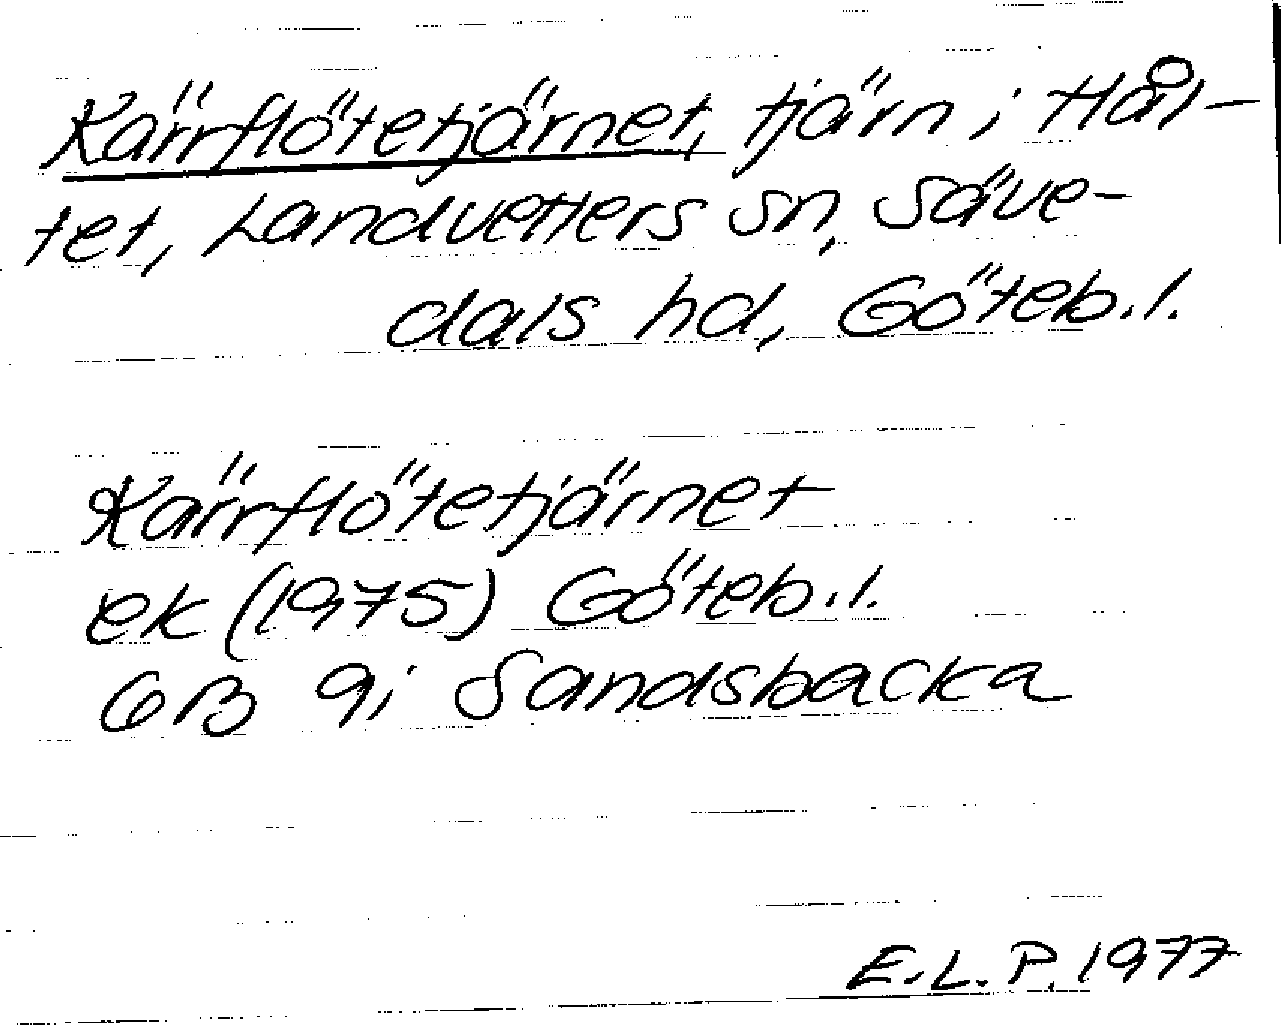 Kärrflötetjärnet, tjärn i Hål-
tet, Landvetters sn, Säve-
dals hd, Göteb.l.
Kärrflötetjärnet
ek (1975) Göteb.l.
6B 9i Sandsbacka
E.L.P. 1977